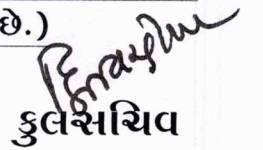 છે.)
કુલસચિવ